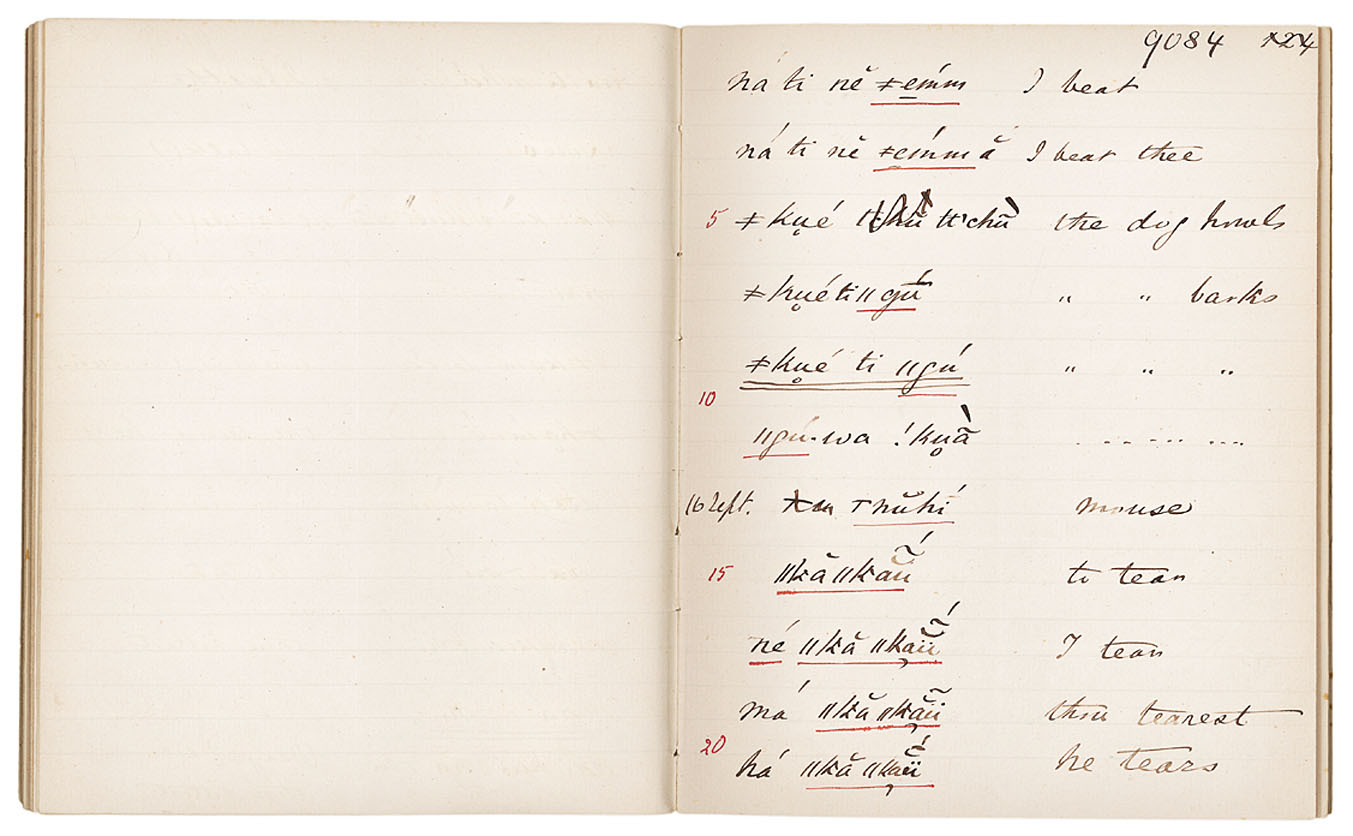 9084
ná ti nĕ ǂemm I beat
ná ti nĕ ǂemmă I beat thee
5 ǂ kụé ǁ'chū̀ the dog howls
ǂkụéti ǁgū́ " " barks
ǂkụé ti ǁgú " " "
10
ǁgú-wa !kụā̀ . -- --- ---
16 Sept. nŭhí mouse
15 ǁkă ǁkaü̃́ to tear
né ǁkă ǁkaü̃́ I tear
má ǁkă ǁkãü̃ thou tearest
20
há ǁkă ǁkaü̃́ he tears